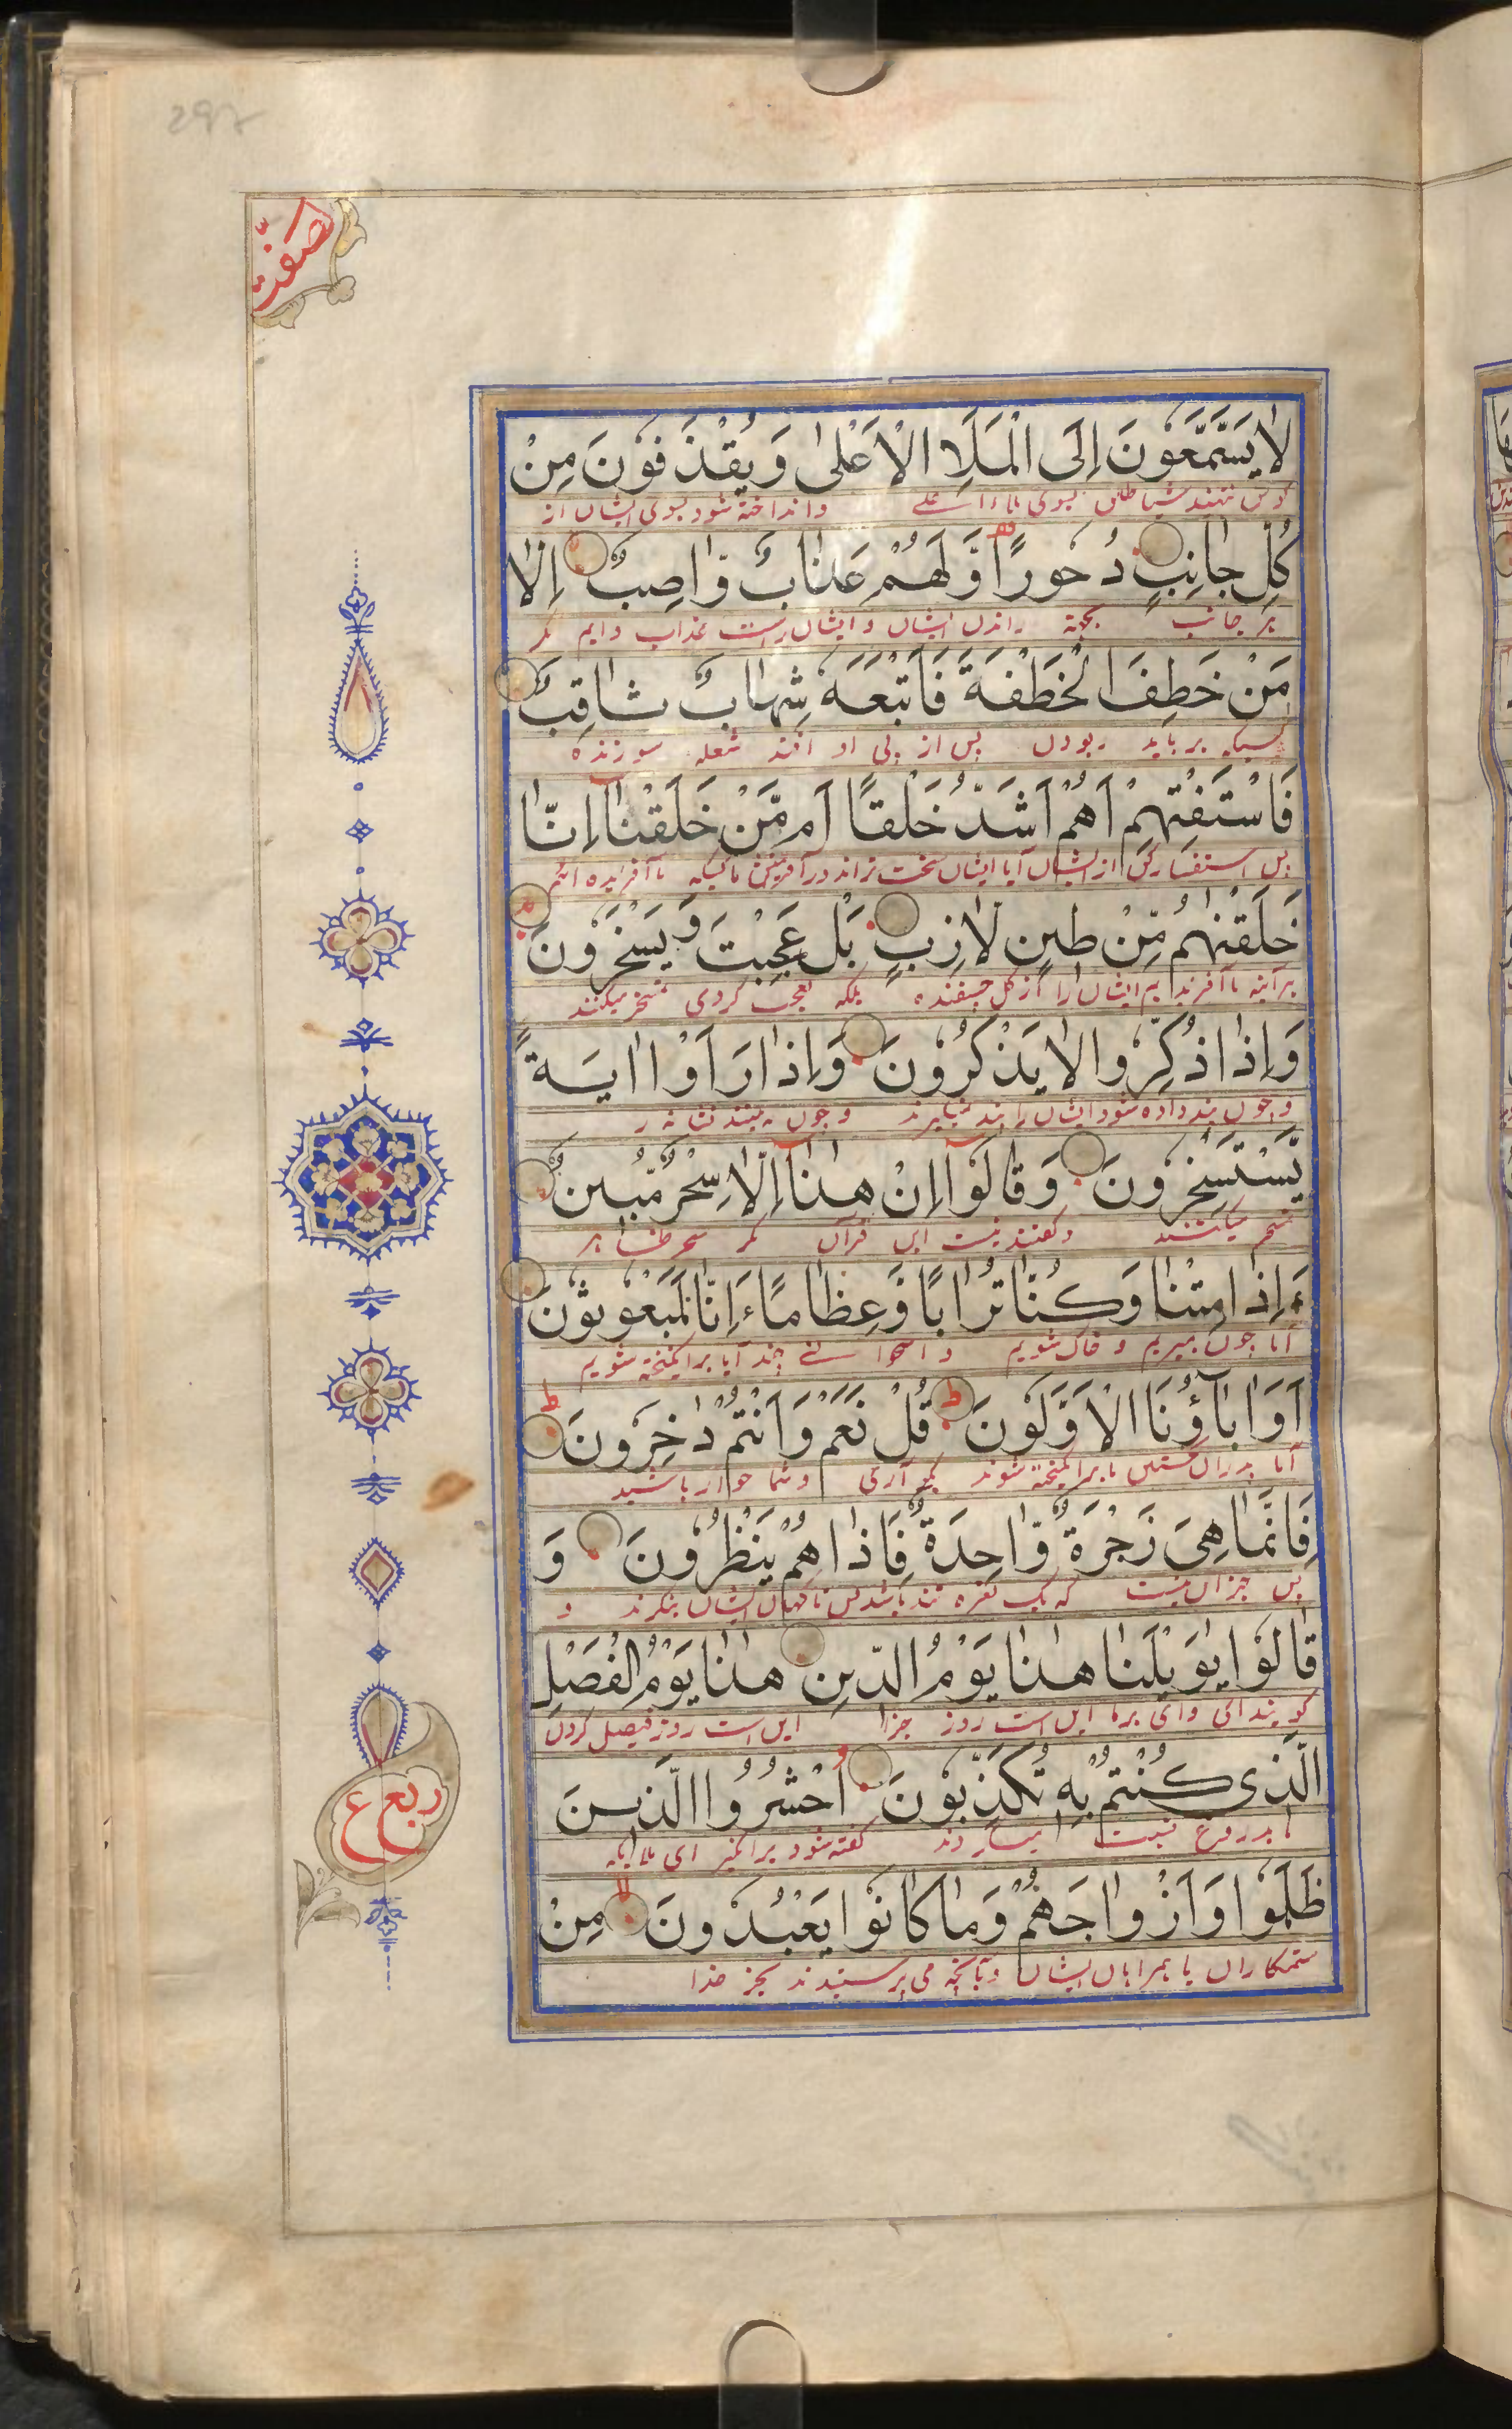 صفّت
لَا يَسَّمَّعُوْنَ اِلَى الْمَلَاِ الْاَعْلٰى وَيُقْذَفُوْنَ مِنْ
بسوی ملاء اعلے وانداخته شود بسوی ایشان از
كُلِّ جَانِبٍ دُحُوْرًا وَّلَهُمْ عَذَابٌ وَّاصِبٌ اِلَّا
هر جانب بجهة راندن ایشان و ایشان راست عذاب دایم مگر
مَنْ خَطِفَ الْخَطْفَةَ فَاَتْبَعَهٗ شِهَابٌ ثَاقِبٌ
کسیکه برباید ربودن پس از پی او افتد شعله سوزنده
فَاسْتَفْتِهِمْ اَهُمْ اَشَدُّ خَلْقًا اَم مَّنْ خَلَقْنَا اِنَّا
پس استفسار کن از ایشان آیا ایشان سخت تراند در آفرینش یا کسیکه ما آفریده ایم
خَلَقْنٰهُم مِّنْ طِيْنٍ لَّازِبٍ بَلْ عَجِبْتَ وَيَسْخَرُوْنَ
هر آینه ما آفریدیم ایشان را از گل چسفنده بلکه تعجب کردی تمسخر میکنند
وَاِذَا ذُكِّرُوا لَا يَذْكُرُوْنَ وَاِذَا رَاَوْا اٰيَةً
و چون پند داده شود ایشان را پند نپذیرند و چون به بینند نشانه ر
يَّسْتَسْخِرُوْنَ وَقَالُوْا اِنْ هٰذَا اِلَّا سِحْرٌ مُّبِيْنٌ
تمسخر میکنند و گفتند نیست این قرآن مگر سحر ظاهر
ءَاِذَا مِتْنَا وَكُنَّا تُرَابًا وَّعِظَامًا ءَاِنَّا لَمَبْعُوْثُوْنَ
آیا چون بمیریم و خاک شویم و استخوانے چند آیا برانگیخته شویم
اَوَاٰبَآؤُنَا الْاَوَّلُوْنَ قُلْ نَعَمْ وَاَنْتُمْ دٰخِرُوْنَ
آیا پدران نخستین ما برانگیخته شوند بگو آری و شما خوار باشید
فَاِنَّمَا هِيَ زَجْرَةٌ وَّاحِدَةٌ فَاِذَا هُمْ يَنْظُرُوْنَ وَ
پس جز این نیست که یک نعره تند باشد پس ناگهان ایشان بنگرند و
قَالُوْا يٰوَيْلَنَا هٰذَا يَوْمُ الدِّيْنِ هٰذَا يَوْمُ الْفَصْلِ
گویند ای وای بر ما این است روز جزا این است روز فیصل کردن
الَّذِي كُنْتُمْ بِهٖ تُكَذِّبُوْنَ اُحْشُرُوا الَّذِيْنَ
بدروغ نسبت میکردند گفته شود برانگیز ای ملایکه
ظَلَمُوْا وَاَزْوَاجَهُمْ وَمَا كَانُوْا يَعْبُدُوْنَ مِنْ
ستمکاران با همراهان ایشان و بآنچه می پرستیدند بجز خدا
ربع ع